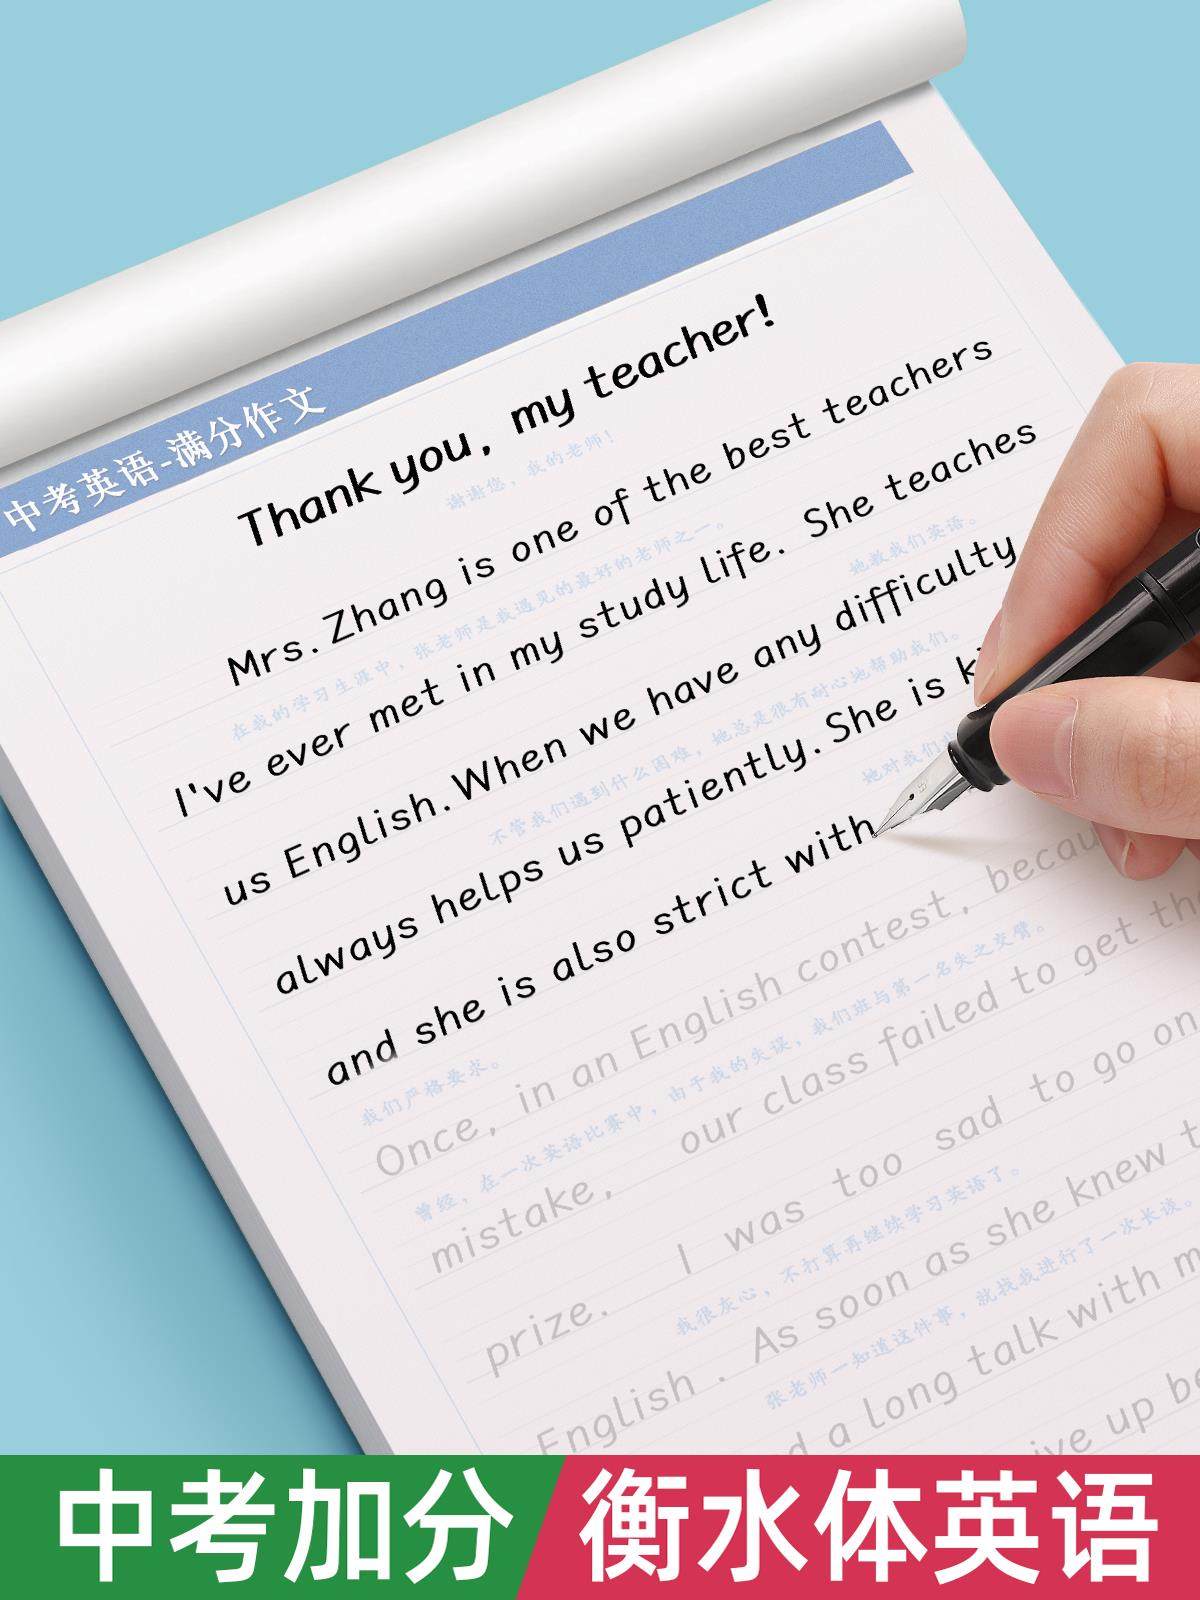 中考英语-满分作文
Thank you, my teacher!
谢谢您，我的老师！
Mrs. Zhang is one of the best teachers
在我的学习生涯中，张老师是我遇见的最好的老师之一。
I've ever met in my study life. She teaches
她教我们英语。
us English. When we have any difficulty
不管我们遇到什么困难，她总是很有耐心地帮助我们。
always helps us patiently. She is
她对我们
and she is also strict with
我们严格要求。
Once, in an English contest, 
曾经，在一次英语比赛中，由于我的失误，我们班与第一名失之交臂。
mistake, our class failed to get
prize. I was too sad to go on
我很灰心，不打算再继续学习英语了。
English . As soon as she knew
张老师一知道这件事，就找我进行了一次长谈。
a long talk with
up
中考加分
衡水体英语